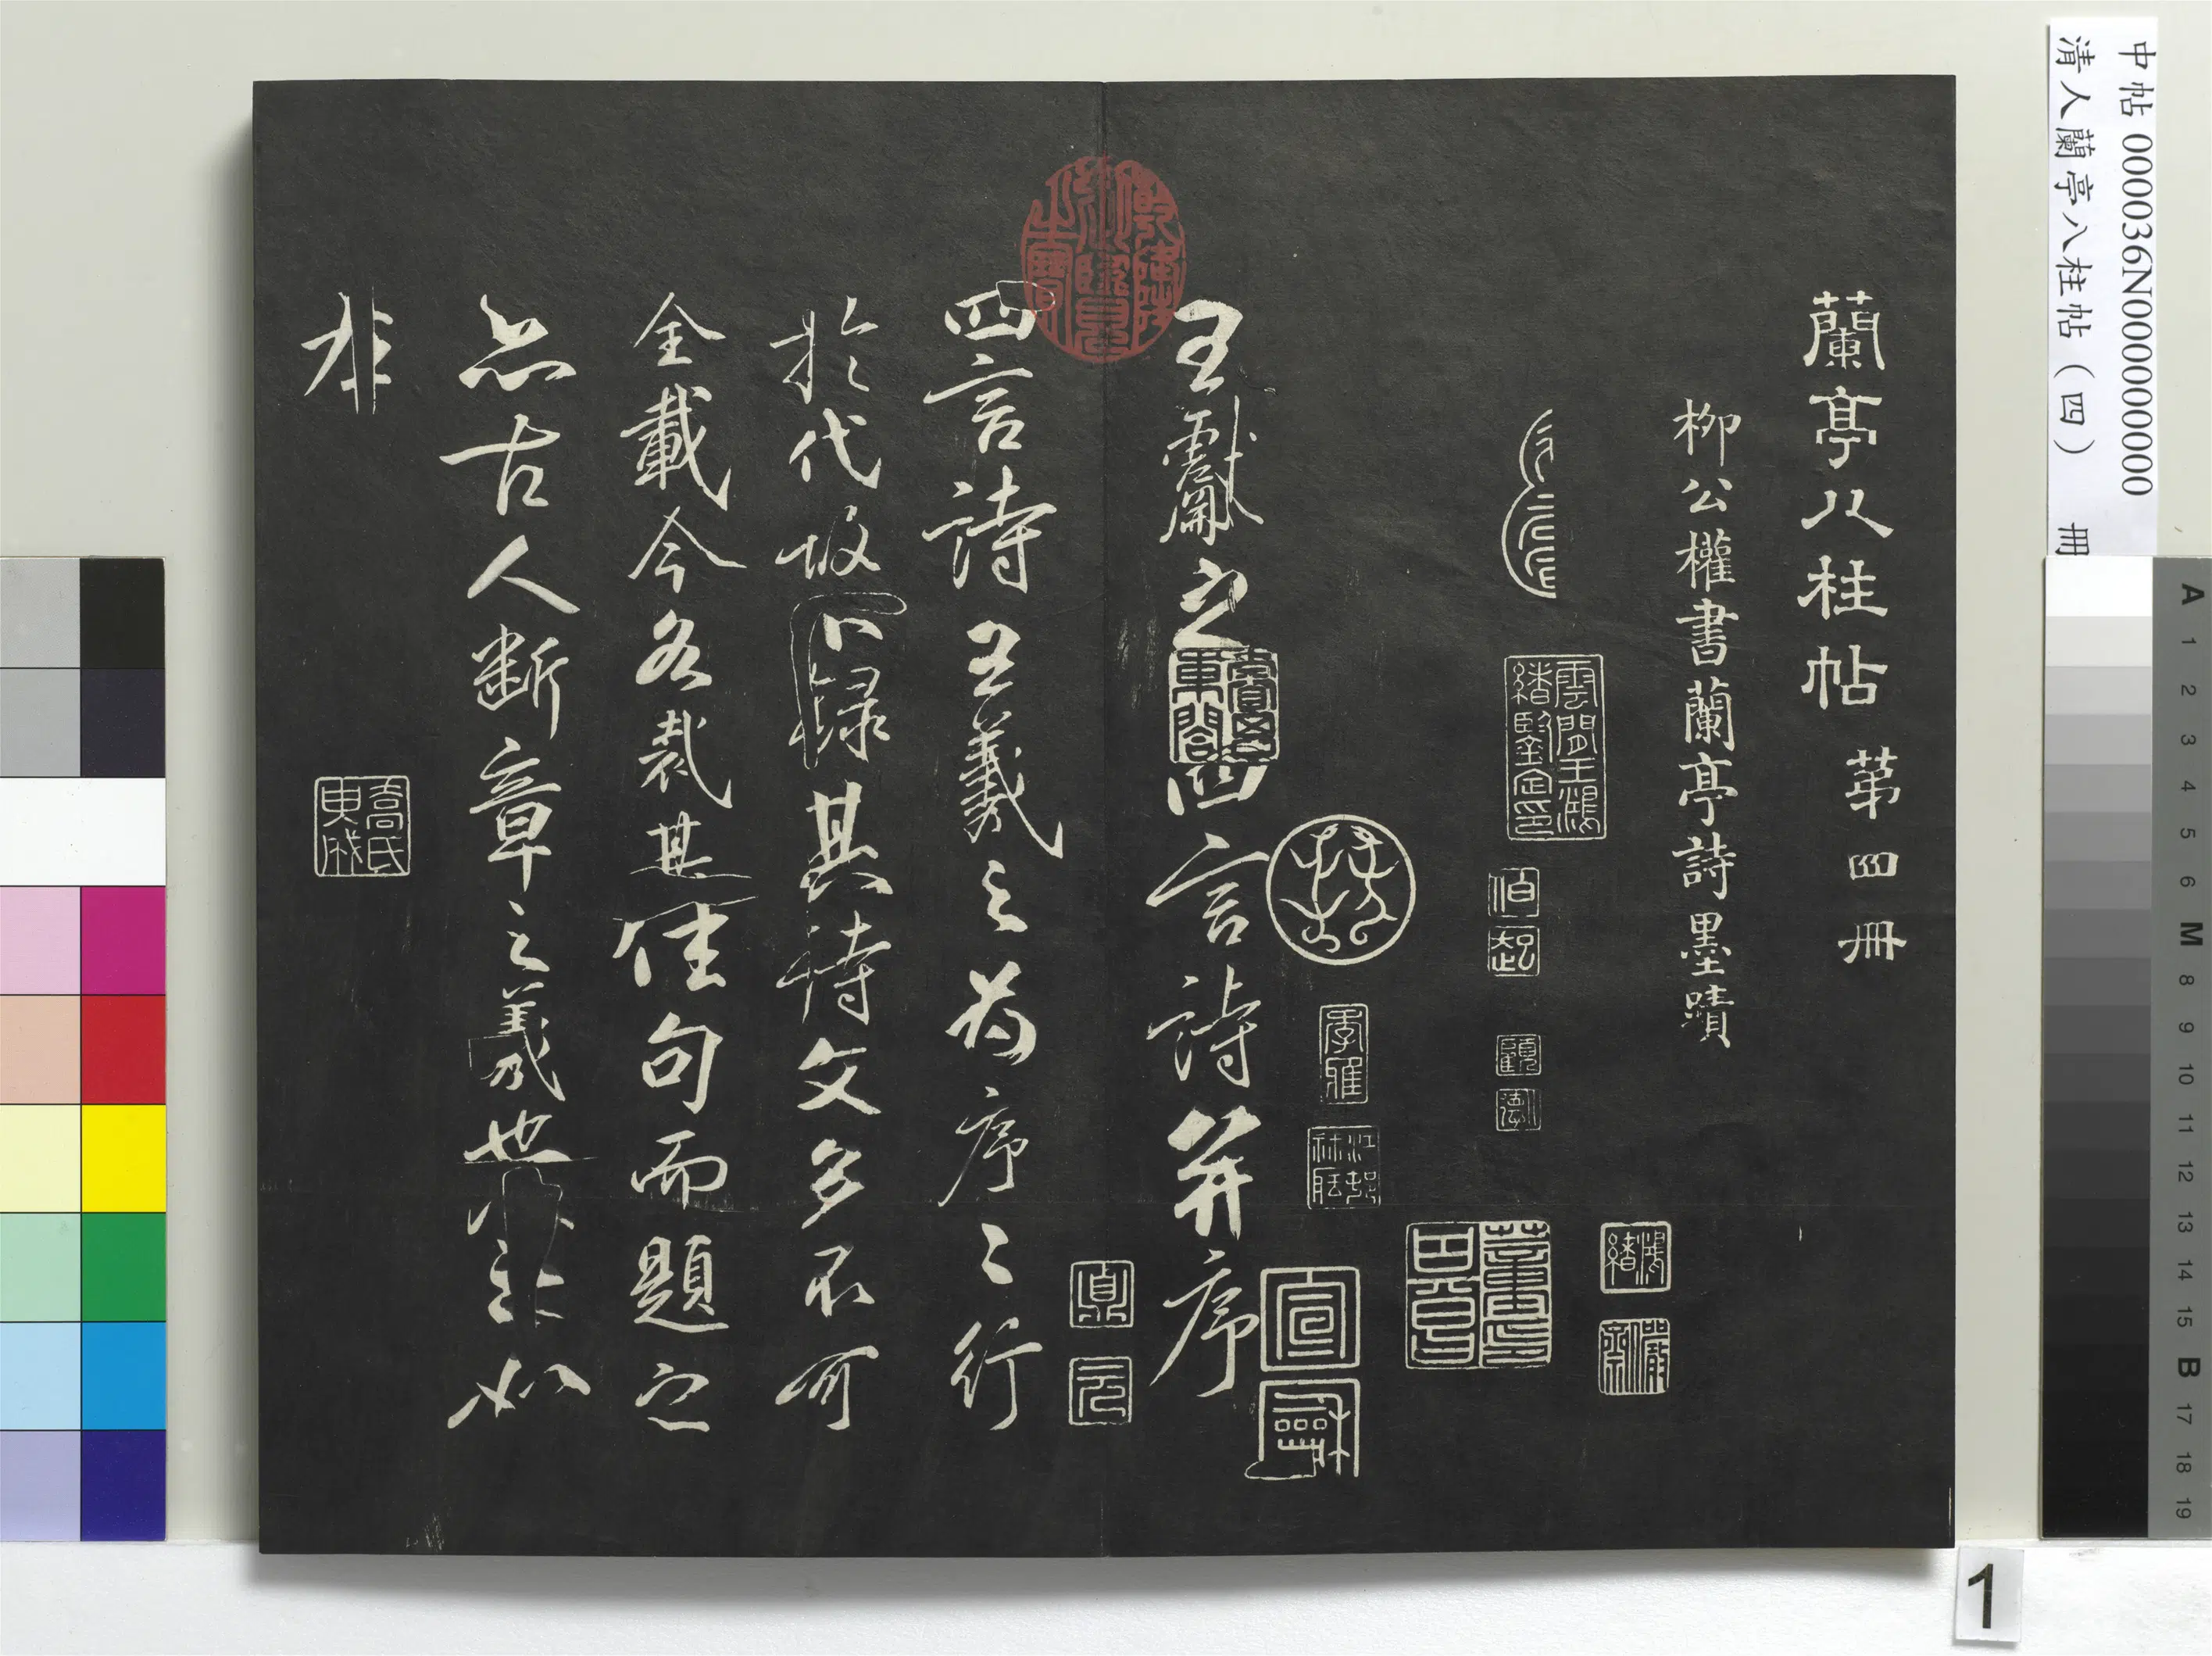 中帖 000036N000000000
清人蘭亭八柱帖（四） 冊
蘭亭八柱帖 第四冊
柳公權書蘭亭詩墨蹟
王獻之四言詩并序
四言詩王羲之為序序行
於代故不錄其詩文多不可
全載今各裁其佳句而題之
亦古人斷章之義也
非
雲間王鴻緒鑒定印
伯起
季雅
宣龢
鴻緒
儼齋
A 1 2 3 4 5 6 M 8 9 10 11 12 13 14 15 B 17 18 19
1